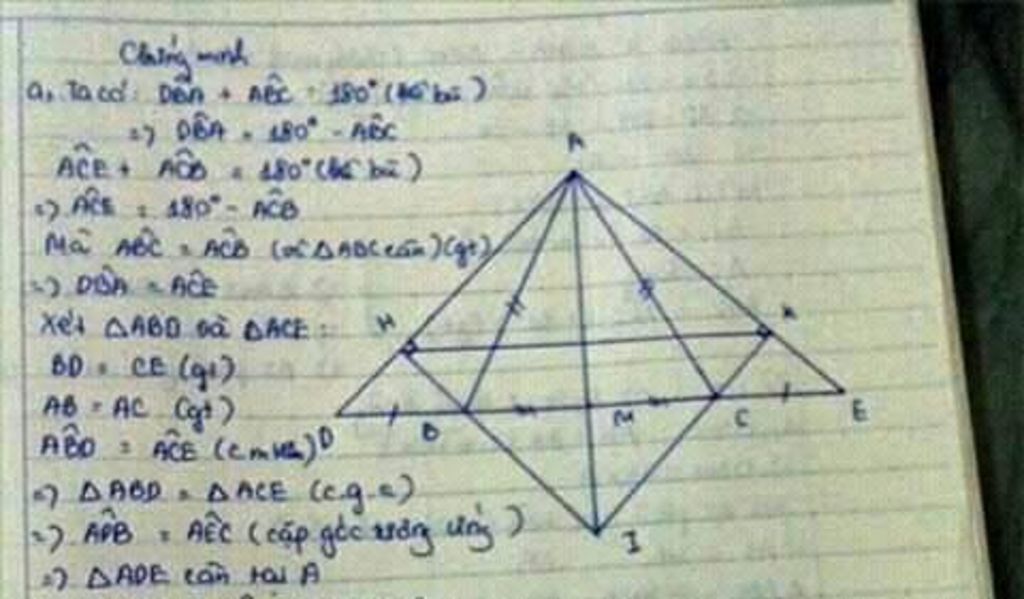 Chứng minh
a, Ta có: DB̂A + AB̂C = 180° (kề bù)
=> DB̂A = 180° - AB̂C
AĈE + AĈB = 180° (kề bù)
=> AĈE = 180° - AĈB
Mà AB̂C = AĈB (vì △ABC cân) (gt)
=> DB̂A = AĈE
Xét △ABD và △ACE:
BD = CE (gt)
AB = AC (gt)
AB̂D = AĈE (cm trên)
=> △ABD = △ACE (c.g.c)
=> AD̂B = AÊC (cặp góc tương ứng)
=> △ADE cân tại A
A
H
K
D
B
M
C
E
I